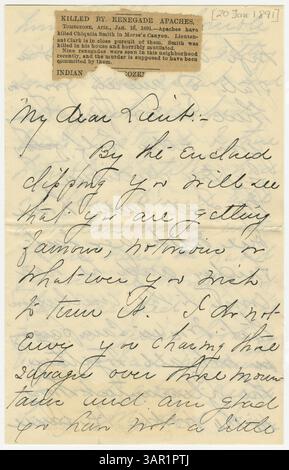 [20 Jan 1891]
KILLED BY RENEGADE APACHES.
TOMBSTONE, Ariz., Jan. 16, 1891.—Apaches have
killed Chiquita Smith in Morse's Canyon. Lieuten-
ant Clark is in close pursuit of them. Smith was
killed in his house and horribly mutilated.
Nine renegades were seen in this neighborhood
recently, and the murder is supposed to have been
committed by them.
INDIAN
My dear Lieut:-
By the Enclosed
clipping you will see
that you are getting
famous, notorious or
whatever you wish
to term it. I do not
Envy you chasing those
savages over those moun-
tains and am glad
you have not a little
alamy
Image ID: 3AR1PTJ
www.alamy.com